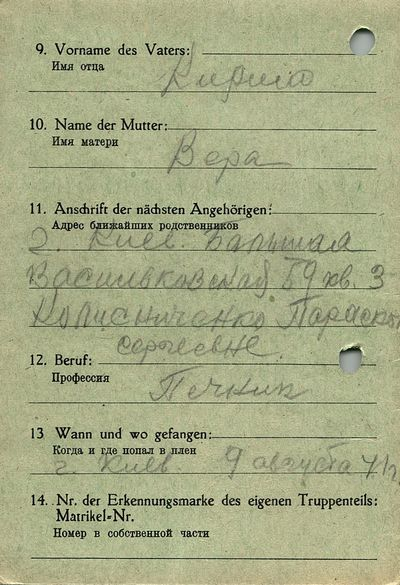 9. Vorname des Vaters:
Имя отца
Кирило
10. Name der Mutter:
Имя матери
Вера
11. Anschrift der nächsten Angehörigen:
Адрес ближайших родственников
г. Киев. Большая
Васильковская 59 кв. 3
Колисниченко Параске
Сергеевне
12. Beruf:
Профессия
Печник
13 Wann und wo gefangen:
Когда и где попал в плен
г. Киев 9 августа 41 г.
14. Nr. der Erkennungsmarke des eigenen Truppenteils:
Matrikel-Nr.
Номер в собственной части